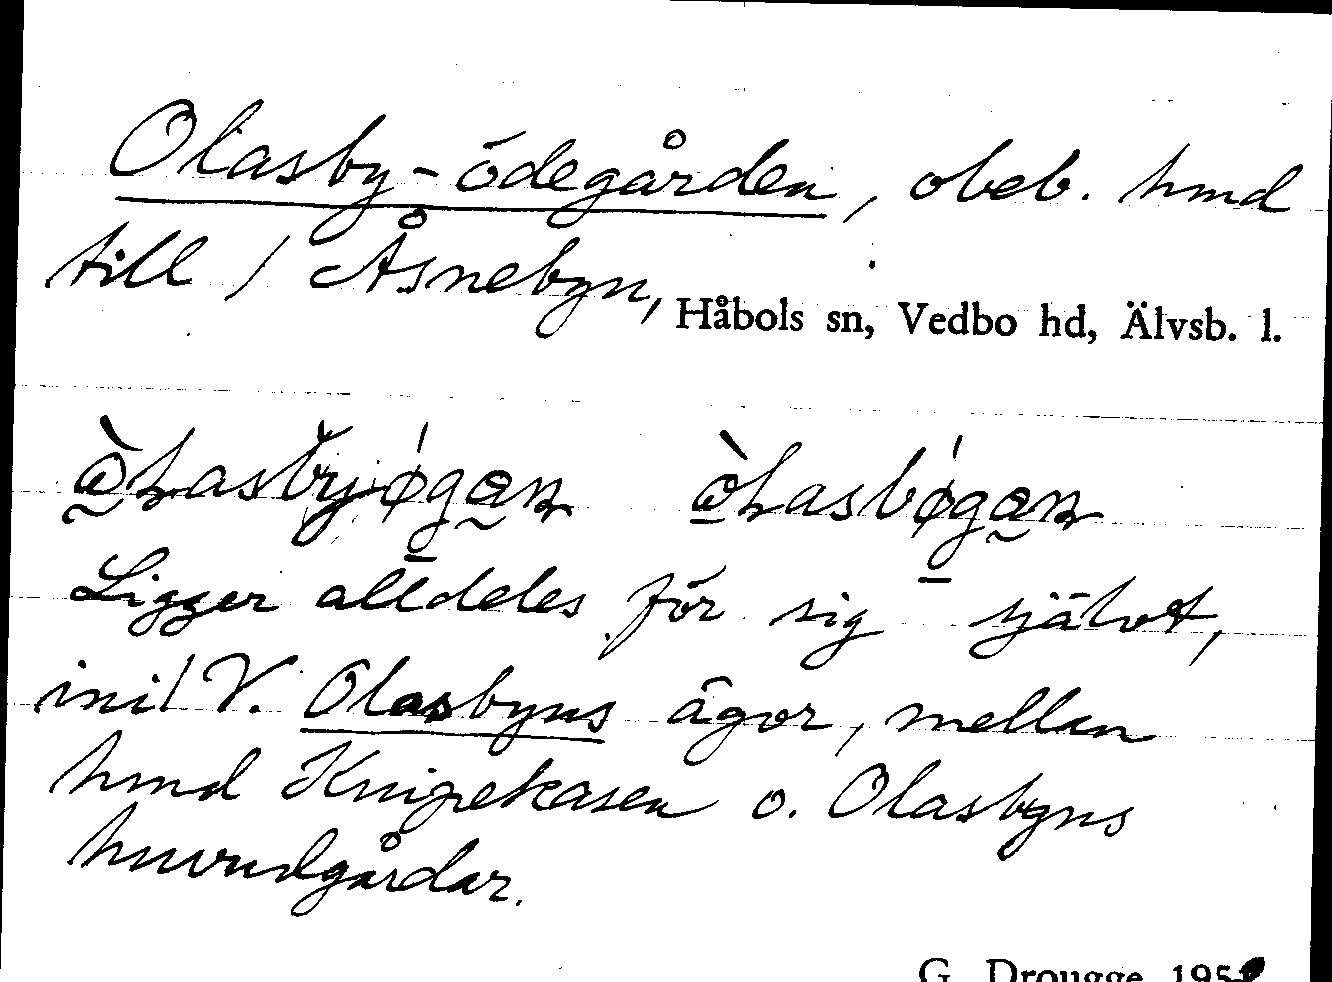 Olasby-ödegården, obeb. hmd
till / Åsnebyn, Håbols sn, Vedbo hd, Älvsb. l.
Ligger alldeles för sig självt,
ini / V. Olasbyns ägor, mellan
hmd Knipekasen o. Olasbyns
huvudgårdar.
G. Drougge 195